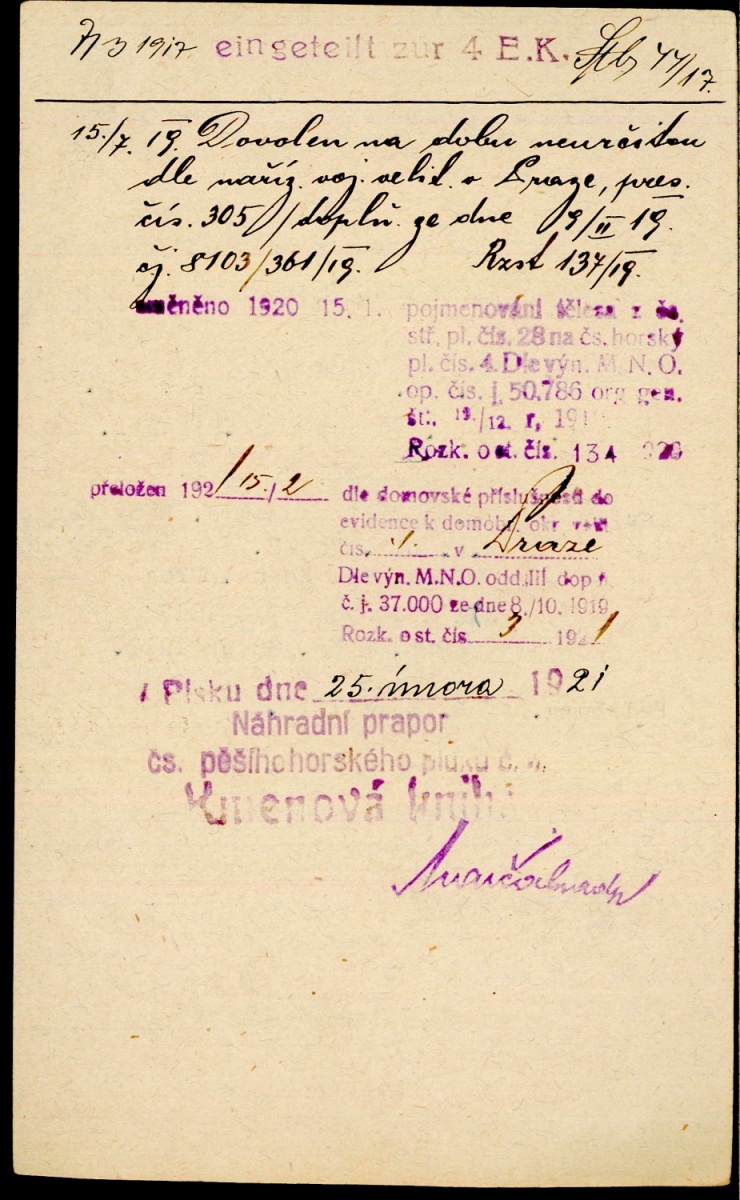 3 1917 eingeteilt zur 4 E.K. Stb 44/17.
15./7. 19. Dovolen na dobu neurčitou
dle naříz. voj. velit. v Praze, pres.
čís. 305/doplň. ze dne 9/II 19.
čj. 8103/361/19. Rzst 137/19.
změněno 1920 15. 1. pojmenování tělesa z čs.
stř. pl. čís. 28 na čs. horský
pl. čís. 4. Dle výn. M. N. O.
op. čís. j. 50.786 org gen.
št. 19./12. r. 191
Rozk. ost. čís. 134 920
přeložen 1921 15./2 dle domovské příslušnosti do
evidence k domobr. okr. velit.
čís. 1. v Praze
Dle výn. M.N.O. odd. III dop.
č. j. 37.000 ze dne 8./10. 1919
Rozk. ost. čís 3 1921
V Písku dne 25. února 1921
Náhradní prapor
čs. pěšího horského pluku č. 4.
Kmenová kniha